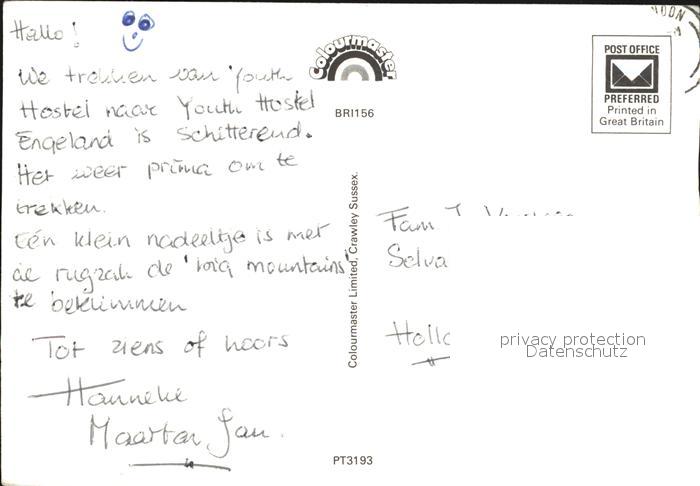 Hallo!
We trekken van Youth
Hostel naar Youth Hostel
Engeland is schitterend.
Het weer prima om te
trekken.
Eén klein nadeeltje is met
de rugzak de 'big mountains'
te beklimmen
Tot ziens of hoors
Hanneke
Maarten, Jan.
Colourmaster
BRI156
Colourmaster Limited, Crawley Sussex.
PT3193
POST OFFICE
PREFERRED
Printed in
Great Britain
Fam
Selva
Hollo
privacy protection
Datenschutz